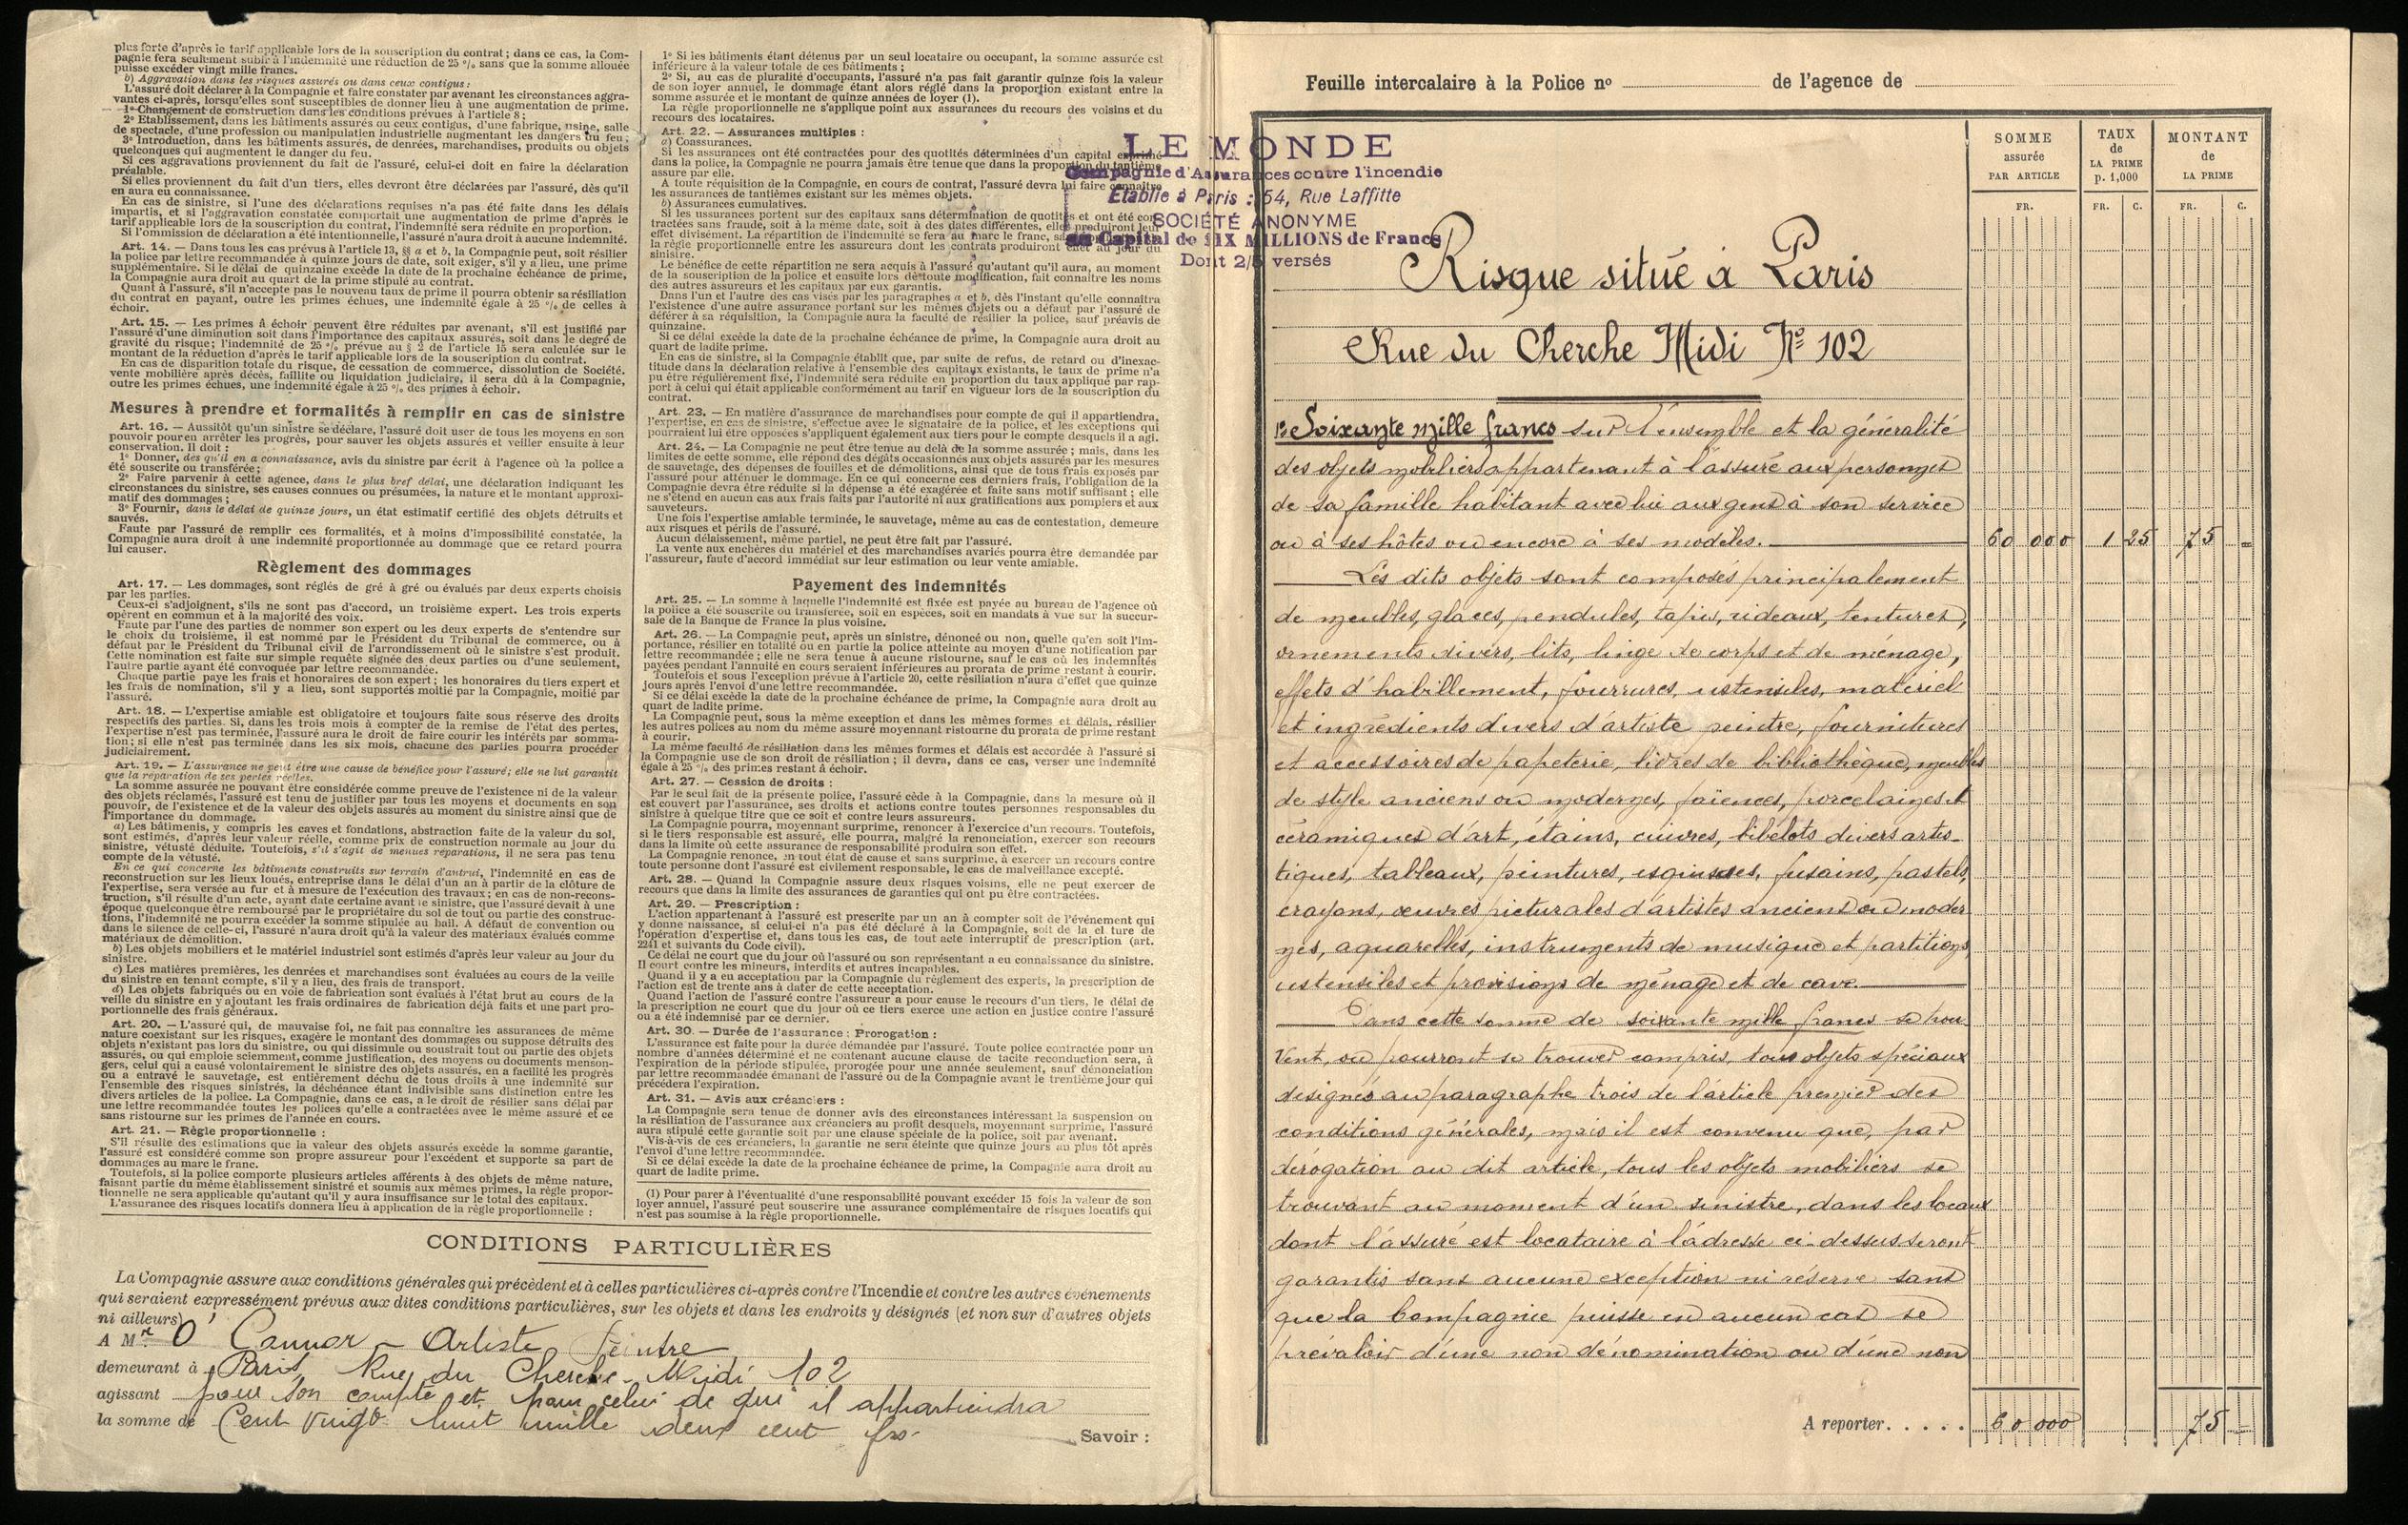 plus forte d'après le tarif applicable lors de la souscription du contrat ; dans ce cas, la Com-
pagnie fera seulement subir à l'indemnité une réduction de 25 % sans que la somme allouée
puisse excéder vingt mille francs.
b) Aggravation dans les risques assurés ou dans ceux contigus :
L'assuré doit déclarer à la Compagnie et faire constater par avenant les circonstances aggra-
vantes ci-après, lorsqu'elles sont susceptibles de donner lieu à une augmentation de prime.
1° Changement de construction dans les conditions prévues à l'article 8 ;
2° Etablissement, dans les bâtiments assurés ou ceux contigus, d'une fabrique, usine, salle
de spectacle, d'une profession ou manipulation industrielle augmentant les dangers du feu ;
3° Introduction, dans les bâtiments assurés, de denrées, marchandises, produits ou objets
quelconques qui augmentent le danger du feu.
Si ces aggravations proviennent du fait de l'assuré, celui-ci doit en faire la déclaration
préalable.
Si elles proviennent du fait d'un tiers, elles devront être déclarées par l'assuré, dès qu'il
en aura eu connaissance.
En cas de sinistre, si l'une des déclarations requises n'a pas été faite dans les délais
impartis, et si l'aggravation constatée comportait une augmentation de prime d'après le
tarif applicable lors de la souscription du contrat, l'indemnité sera réduite en proportion.
Si l'ommission de déclaration a été intentionnelle, l'assuré n'aura droit à aucune indemnité.
Art. 14. — Dans tous les cas prévus à l'article 13, §§ a et b, la Compagnie peut, soit résilier
la police par lettre recommandée à quinze jours de date, soit exiger, s'il y a lieu, une prime
supplémentaire. Si le délai de quinzaine excède la date de la prochaine échéance de prime,
la Compagnie aura droit au quart de la prime stipulé au contrat.
Quant à l'assuré, s'il n'accepte pas le nouveau taux de prime il pourra obtenir sa résiliation
du contrat en payant, outre les primes échues, une indemnité égale à 25 % de celles à
échoir.
Art. 15. — Les primes à échoir peuvent être réduites par avenant, s'il est justifié par
l'assuré d'une diminution soit dans l'importance des capitaux assurés, soit dans le degré de
gravité du risque ; l'indemnité de 25 % prévue au § 2 de l'article 15 sera calculée sur le
montant de la réduction d'après le tarif applicable lors de la souscription du contrat.
En cas de disparition totale du risque, de cessation de commerce, dissolution de Société,
vente mobilière après décès, faillite ou liquidation judiciaire, il sera dû à la Compagnie,
outre les primes échues, une indemnité égale à 25 % des primes à échoir.
Mesures à prendre et formalités à remplir en cas de sinistre
Art. 16. — Aussitôt qu'un sinistre se déclare, l'assuré doit user de tous les moyens en son
pouvoir pour en arrêter les progrès, pour sauver les objets assurés et veiller ensuite à leur
conservation. Il doit :
1° Donner, dès qu'il en a connaissance, avis du sinistre par écrit à l'agence où la police a
été souscrite ou transférée ;
2° Faire parvenir à cette agence, dans le plus bref délai, une déclaration indiquant les
circonstances du sinistre, ses causes connues ou présumées, la nature et le montant approxi-
matif des dommages ;
3° Fournir, dans le délai de quinze jours, un état estimatif certifié des objets détruits et
sauvés.
Faute par l'assuré de remplir ces formalités, et à moins d'impossibilité constatée, la
Compagnie aura droit à une indemnité proportionnée au dommage que ce retard pourra
lui causer.
Règlement des dommages
Art. 17. — Les dommages, sont réglés de gré à gré ou évalués par deux experts choisis
par les parties.
Ceux-ci s'adjoignent, s'ils ne sont pas d'accord, un troisième expert. Les trois experts
opèrent en commun et à la majorité des voix.
Faute par l'une des parties de nommer son expert ou les deux experts de s'entendre sur
le choix du troisième, il est nommé par le Président du Tribunal de commerce, ou à
défaut par le Président du Tribunal civil de l'arrondissement où le sinistre s'est produit.
Cette nomination est faite sur simple requête signée des deux parties ou d'une seulement,
l'autre partie ayant été convoquée par lettre recommandée.
Chaque partie paye les frais et honoraires de son expert ; les honoraires du tiers expert et
les frais de nomination, s'il y a lieu, sont supportés moitié par la Compagnie, moitié par
l'assuré.
Art. 18. — L'expertise amiable est obligatoire et toujours faite sous réserve des droits
respectifs des parties. Si, dans les trois mois à compter de la remise de l'état des pertes,
l'expertise n'est pas terminée, l'assuré aura le droit de faire courir les intérêts par somma-
tion ; si elle n'est pas terminée dans les six mois, chacune des parties pourra procéder
judiciairement.
Art. 19. — L'assurance ne peut être une cause de bénéfice pour l'assuré ; elle ne lui garantit
que la réparation de ses pertes réelles.
La somme assurée ne pouvant être considérée comme preuve de l'existence ni de la valeur
des objets réclamés, l'assuré est tenu de justifier par tous les moyens et documents en son
pouvoir, de l'existence et de la valeur des objets assurés au moment du sinistre ainsi que de
l'importance du dommage.
a) Les bâtiments, y compris les caves et fondations, abstraction faite de la valeur du sol,
sont estimés, d'après leur valeur réelle, comme prix de construction normale au jour du
sinistre, vétusté déduite. Toutefois, s'il s'agit de menues réparations, il ne sera pas tenu
compte de la vétusté.
En ce qui concerne les bâtiments construits sur terrain d'autrui, l'indemnité en cas de
reconstruction sur les lieux loués, entreprise dans le délai d'un an à partir de la clôture de
l'expertise, sera versée au fur et à mesure de l'exécution des travaux ; en cas de non-recons-
truction, s'il résulte d'un acte, ayant date certaine avant le sinistre, que l'assuré devait à une
époque quelconque être remboursé par le propriétaire du sol de tout ou partie des construc-
tions, l'indemnité ne pourra excéder la somme stipulée au bail. A défaut de convention ou
dans le silence de celle-ci, l'assuré n'aura droit qu'à la valeur des matériaux évalués comme
matériaux de démolition.
b) Les objets mobiliers et le matériel industriel sont estimés d'après leur valeur au jour du
sinistre.
c) Les matières premières, les denrées et marchandises sont évaluées au cours de la veille
du sinistre en tenant compte, s'il y a lieu, des frais de transport.
d) Les objets fabriqués ou en voie de fabrication sont évalués à l'état brut au cours de la
veille du sinistre en y ajoutant les frais ordinaires de fabrication déjà faits et une part pro-
portionnelle des frais généraux.
Art. 20. — L'assuré qui, de mauvaise foi, ne fait pas connaître les assurances de même
nature coexistant sur les risques, exagère le montant des dommages ou suppose détruits des
objets n'existant pas lors du sinistre, ou qui dissimule ou soustrait tout ou partie des objets
assurés, ou qui emploie sciemment, comme justification, des moyens ou documents menson-
gers, celui qui a causé volontairement le sinistre des objets assurés, en a facilité les progrès
ou a entravé le sauvetage, est entièrement déchu de tous droits à une indemnité sur
l'ensemble des risques sinistrés, la déchéance étant indivisible sans distinction entre les
divers articles de la police. La Compagnie, dans ce cas, a le droit de résilier sans délai par
une lettre recommandée toutes les polices qu'elle a contractées avec le même assuré et ce
sans ristourne sur les primes de l'année en cours.
Art. 21. — Règle proportionnelle :
S'il résulte des estimations que la valeur des objets assurés excède la somme garantie,
l'assuré est considéré comme son propre assureur pour l'excédent et supporte sa part de
dommages au marc le franc.
Toutefois, si la police comporte plusieurs articles afférents à des objets de même nature,
faisant partie du même établissement sinistré et soumis aux mêmes primes, la règle propor-
tionnelle ne sera applicable qu'autant qu'il y aura insuffisance sur le total des capitaux.
L'assurance des risques locatifs donnera lieu à application de la règle proportionnelle :
1° Si les bâtiments étant détenus par un seul locataire ou occupant, la somme assurée est
inférieure à la valeur totale de ces bâtiments ;
2° Si, au cas de pluralité d'occupants, l'assuré n'a pas fait garantir quinze fois la valeur
de son loyer annuel, le dommage étant alors réglé dans la proportion existant entre la
somme assurée et le montant de quinze années de loyer (1).
La règle proportionnelle ne s'applique point aux assurances du recours des voisins et du
recours des locataires.
Art. 22. — Assurances multiples :
a) Coassurances.
Si les assurances ont été contractées pour des quotités déterminées d'un capital exprimé
dans la police, la Compagnie ne pourra jamais être tenue que dans la proportion du tantième
assuré par elle.
A toute réquisition de la Compagnie, en cours de contrat, l'assuré devra lui faire connaître
les assurances de tantièmes existant sur les mêmes objets.
b) Assurances cumulatives.
Si les ussurances portent sur des capitaux sans détermination de quotités et ont été con-
tractées sans fraude, soit à la même date, soit à des dates différentes, elles produiront leur
effet divisément. La répartition de l'indemnité se fera au marc le franc,
la règle proportionnelle entre les assureurs dont les contrats produiront effet au jour du
sinisire.
Le bénéfice de cette répartition ne sera acquis à l'assuré qu'autant qu'il aura, au moment
de la souscription de la police et ensuite lors de toute modification, fait connaître les noms
des autres assureurs et les capitaux par eux garantis.
Dans l'un et l'autre des cas visés par les paragraphes a et b, dès l'instant qu'elle connaîtra
l'existence d'une autre assurance portant sur les mêmes objets ou a défaut par l'assuré de
déférer à sa réquisition, la Compagnie aura la faculté de résilier la police, sauf préavis de
quinzaine.
Si ce délai excède la date de la prochaine échéance de prime, la Compagnie aura droit au
quart de ladite prime.
En cas de sinistre, si la Compagnie établit que, par suite de refus, de retard ou d'inexac-
titude dans la déclaration relative à l'ensemble des capitaux existants, le taux de prime n'a
pu être régulièrement fixé, l'indemnité sera réduite en proportion du taux appliqué par rap-
port à celui qui était applicable conformément au tarif en vigueur lors de la souscription du
contrat.
Art. 23. — En matière d'assurance de marchandises pour compte de qui il appartiendra,
l'expertise, en cas de sinistre, s'effectue avec le signataire de la police, et les exceptions qui
pourraient lui être opposées s'appliquent également aux tiers pour le compte desquels il a agi.
Art. 24. — La Compagnie ne peut être tenue au delà de la somme assurée ; mais, dans les
limites de cette somme, elle répond des dégâts occasionnés aux objets assurés par les mesures
de sauvetage, des dépenses de fouilles et de démolitions, ainsi que de tous frais exposés par
l'assuré pour atténuer le dommage. En ce qui concerne ces derniers frais, l'obligation de la
Compagnie devra être réduite si la dépense a été exagérée et faite sans motif suffisant ; elle
ne s'étend en aucun cas aux frais faits par l'autorité ni aux gratifications aux pompiers et aux
sauveteurs.
Une fois l'expertise amiable terminée, le sauvetage, même au cas de contestation, demeure
aux risques et périls de l'assuré.
Aucun délaissement, même partiel, ne peut être fait par l'assuré.
La vente aux enchères du matériel et des marchandises avariés pourra être demandée par
l'assureur, faute d'accord immédiat sur leur estimation ou leur vente amiable.
Payement des indemnités
Art. 25. — La somme à laquelle l'indemnité est fixée est payée au bureau de l'agence où
la police a été souscrite ou transférée, soit en espèces, soit en mandats à vue sur la succur-
sale de la Banque de France la plus voisine.
Art. 26. — La Compagnie peut, après un sinistre, dénoncé ou non, quelle qu'en soit l'im-
portance, résilier en totalité ou en partie la police atteinte au moyen d'une notification par
lettre recommandée ; elle ne sera tenue à aucune ristourne, sauf le cas où les indemnités
payées pendant l'annuité en cours seraient inférieures au prorata de prime restant à courir.
Toutefois et sous l'exception prévue à l'article 20, cette résiliation n'aura d'effet que quinze
jours après l'envoi d'une lettre recommandée.
Si ce délai excède la date de la prochaine échéance de prime, la Compagnie aura droit au
quart de ladite prime.
La Compagnie peut, sous la même exception et dans les mêmes formes et délais, résilier
les autres polices au nom du même assuré moyennant ristourne du prorata de prime restant
à courir.
La même faculté de résiliation dans les mêmes formes et délais est accordée à l'assuré si
la Compagnie use de son droit de résiliation ; il devra, dans ce cas, verser une indemnité
égale à 25 % des primes restant à échoir.
Art. 27. — Cession de droits :
Par le seul fait de la présente police, l'assuré cède à la Compagnie, dans la mesure où il
est couvert par l'assurance, ses droits et actions contre toutes personnes responsables du
sinistre à quelque titre que ce soit et contre leurs assureurs.
La Compagnie pourra, moyennant surprime, renoncer à l'exercice d'un recours. Toutefois,
si le tiers responsable est assuré, elle pourra, malgré la renonciation, exercer son recours
dans la limite où cette assurance de responsabilité produira son effet.
La Compagnie renonce, en tout état de cause et sans surprime, à exercer un recours contre
toute personne dont l'assuré est civilement responsable, le cas de malveillance excepté.
Art. 28. — Quand la Compagnie assure deux risques voisins, elle ne peut exercer de
recours que dans la limite des assurances de garanties qui ont pu être contractées.
Art. 29. — Prescription :
L'action appartenant à l'assuré est prescrite par un an à compter soit de l'événement qui
y donne naissance, si celui-ci n'a pas été déclaré à la Compagnie, soit de la cl ture de
l'opération d'expertise et, dans tous les cas, de tout acte interruptif de prescription (art.
2241 et suivants du Code civil).
Ce délai ne court que du jour où l'assuré ou son représentant a eu connaissance du sinistre.
Il court contre les mineurs, interdits et autres incapables.
Quand il y a eu acceptation par la Compagnie du règlement des experts, la prescription de
l'action est de trente ans à dater de cette acceptation.
Quand l'action de l'assuré contre l'assureur a pour cause le recours d'un tiers, le délai de
la prescription ne court que du jour où ce tiers exerce une action en justice contre l'assuré
ou a été indemnisé par ce dernier.
Art. 30. — Durée de l'assurance : Prorogation :
L'assurance est faite pour la durée demandée par l'assuré. Toute police contractée pour un
nombre d'années déterminé et ne contenant aucune clause de tacite reconduction sera, à
l'expiration de la période stipulée, prorogée pour une année seulement, sauf dénonciation
par lettre recommandée émanant de l'assuré ou de la Compagnie avant le trentième jour qui
précédera l'expiration.
Art. 31. — Avis aux créanciers :
La Compagnie sera tenue de donner avis des circonstances intéressant la suspension ou
la résiliation de l'assurance aux créanciers au profit desquels, moyennant surprime, l'assuré
aura stipulé cette garantie soit par une clause spéciale de la police, soit par avenant.
Vis-à-vis de ces créanciers, la garantie ne sera éteinte que quinze jours au plus tôt après
l'envoi d'une lettre recommandée.
Si ce délai excède la date de la prochaine échéance de prime, la Compagnie aura droit au
quart de ladite prime.
(1) Pour parer à l'éventualité d'une responsabilité pouvant excéder 15 fois la valeur de son
loyer annuel, l'assuré peut souscrire une assurance complémentaire de risques locatifs qui
n'est pas soumise à la règle proportionnelle.
CONDITIONS PARTICULIÈRES
La Compagnie assure aux conditions générales qui précèdent et à celles particulières ci-après contre l'Incendie et contre les autres événements
qui seraient expressément prévus aux dites conditions particulières, sur les objets et dans les endroits y désignés (et non sur d'autres objets
ni ailleurs)
A Mr O'Connor – Artiste Peintre
demeurant à Paris Rue du Cherche-Midi 102
agissant pour son compte et pour celui de qui il appartiendra
la somme de Cent vingt huit mille deux cent frs.
Savoir :
LE MONDE
Compagnie d'Assurances contre l'incendie
Etablie à Paris : 54, Rue Laffitte
SOCIÉTÉ ANONYME
au Capital de SIX MILLIONS de Francs
Dont 2/5 versés
Feuille intercalaire à la Police n° de l'agence de
SOMME assurée PAR ARTICLE
TAUX de LA PRIME p. 1,000
MONTANT de LA PRIME
FR. FR. C. FR. C.
Risque situé à Paris
Rue du Cherche Midi N° 102
1° Soixante mille francs sur l'ensemble et la généralité
des objets mobiliers appartenant à l'assuré aux personnes
de sa famille habitant avec lui aux gens à son service
ou à ses hôtes ou encore à ses modèles. 60 000 1 25 75 =
Les dits objets sont composés principalement
de meubles, glaces, pendules, tapis, rideaux, tentures,
ornements divers, lits, linge de corps et de ménage,
effets d'habillement, fourrures, ustensiles, matériel
et ingrédients divers d'artiste peintre, fournitures
et accessoires de papeterie, livres de bibliothèque, meubles
de style anciens ou modernes, faïences, porcelaines et
céramiques d'art, étains, cuivres, bibelots divers artis-
tiques, tableaux, peintures, esquisses, fusains, pastels,
crayons, œuvres picturales d'artistes anciens ou moder
nes, aquarelles, instruments de musique et partitions,
ustensiles et provisions de ménage et de cave.
Dans cette somme de soixante mille francs se trou-
vent, ou pourront se trouver compris, tous objets spéciaux
désignés au paragraphe trois de l'article premier des
conditions générales, mais il est convenu que, par
dérogation au dit article, tous les objets mobiliers se
trouvant au moment d'un sinistre, dans les locaux
dont l'assuré est locataire à l'adresse ci-dessus seront
garantis sans aucune exception ni réserve sans
que la Compagnie puisse en aucun cas se
prévaloir d'une non dénomination ou d'une non
A reporter. . . . . 60 000 75 =